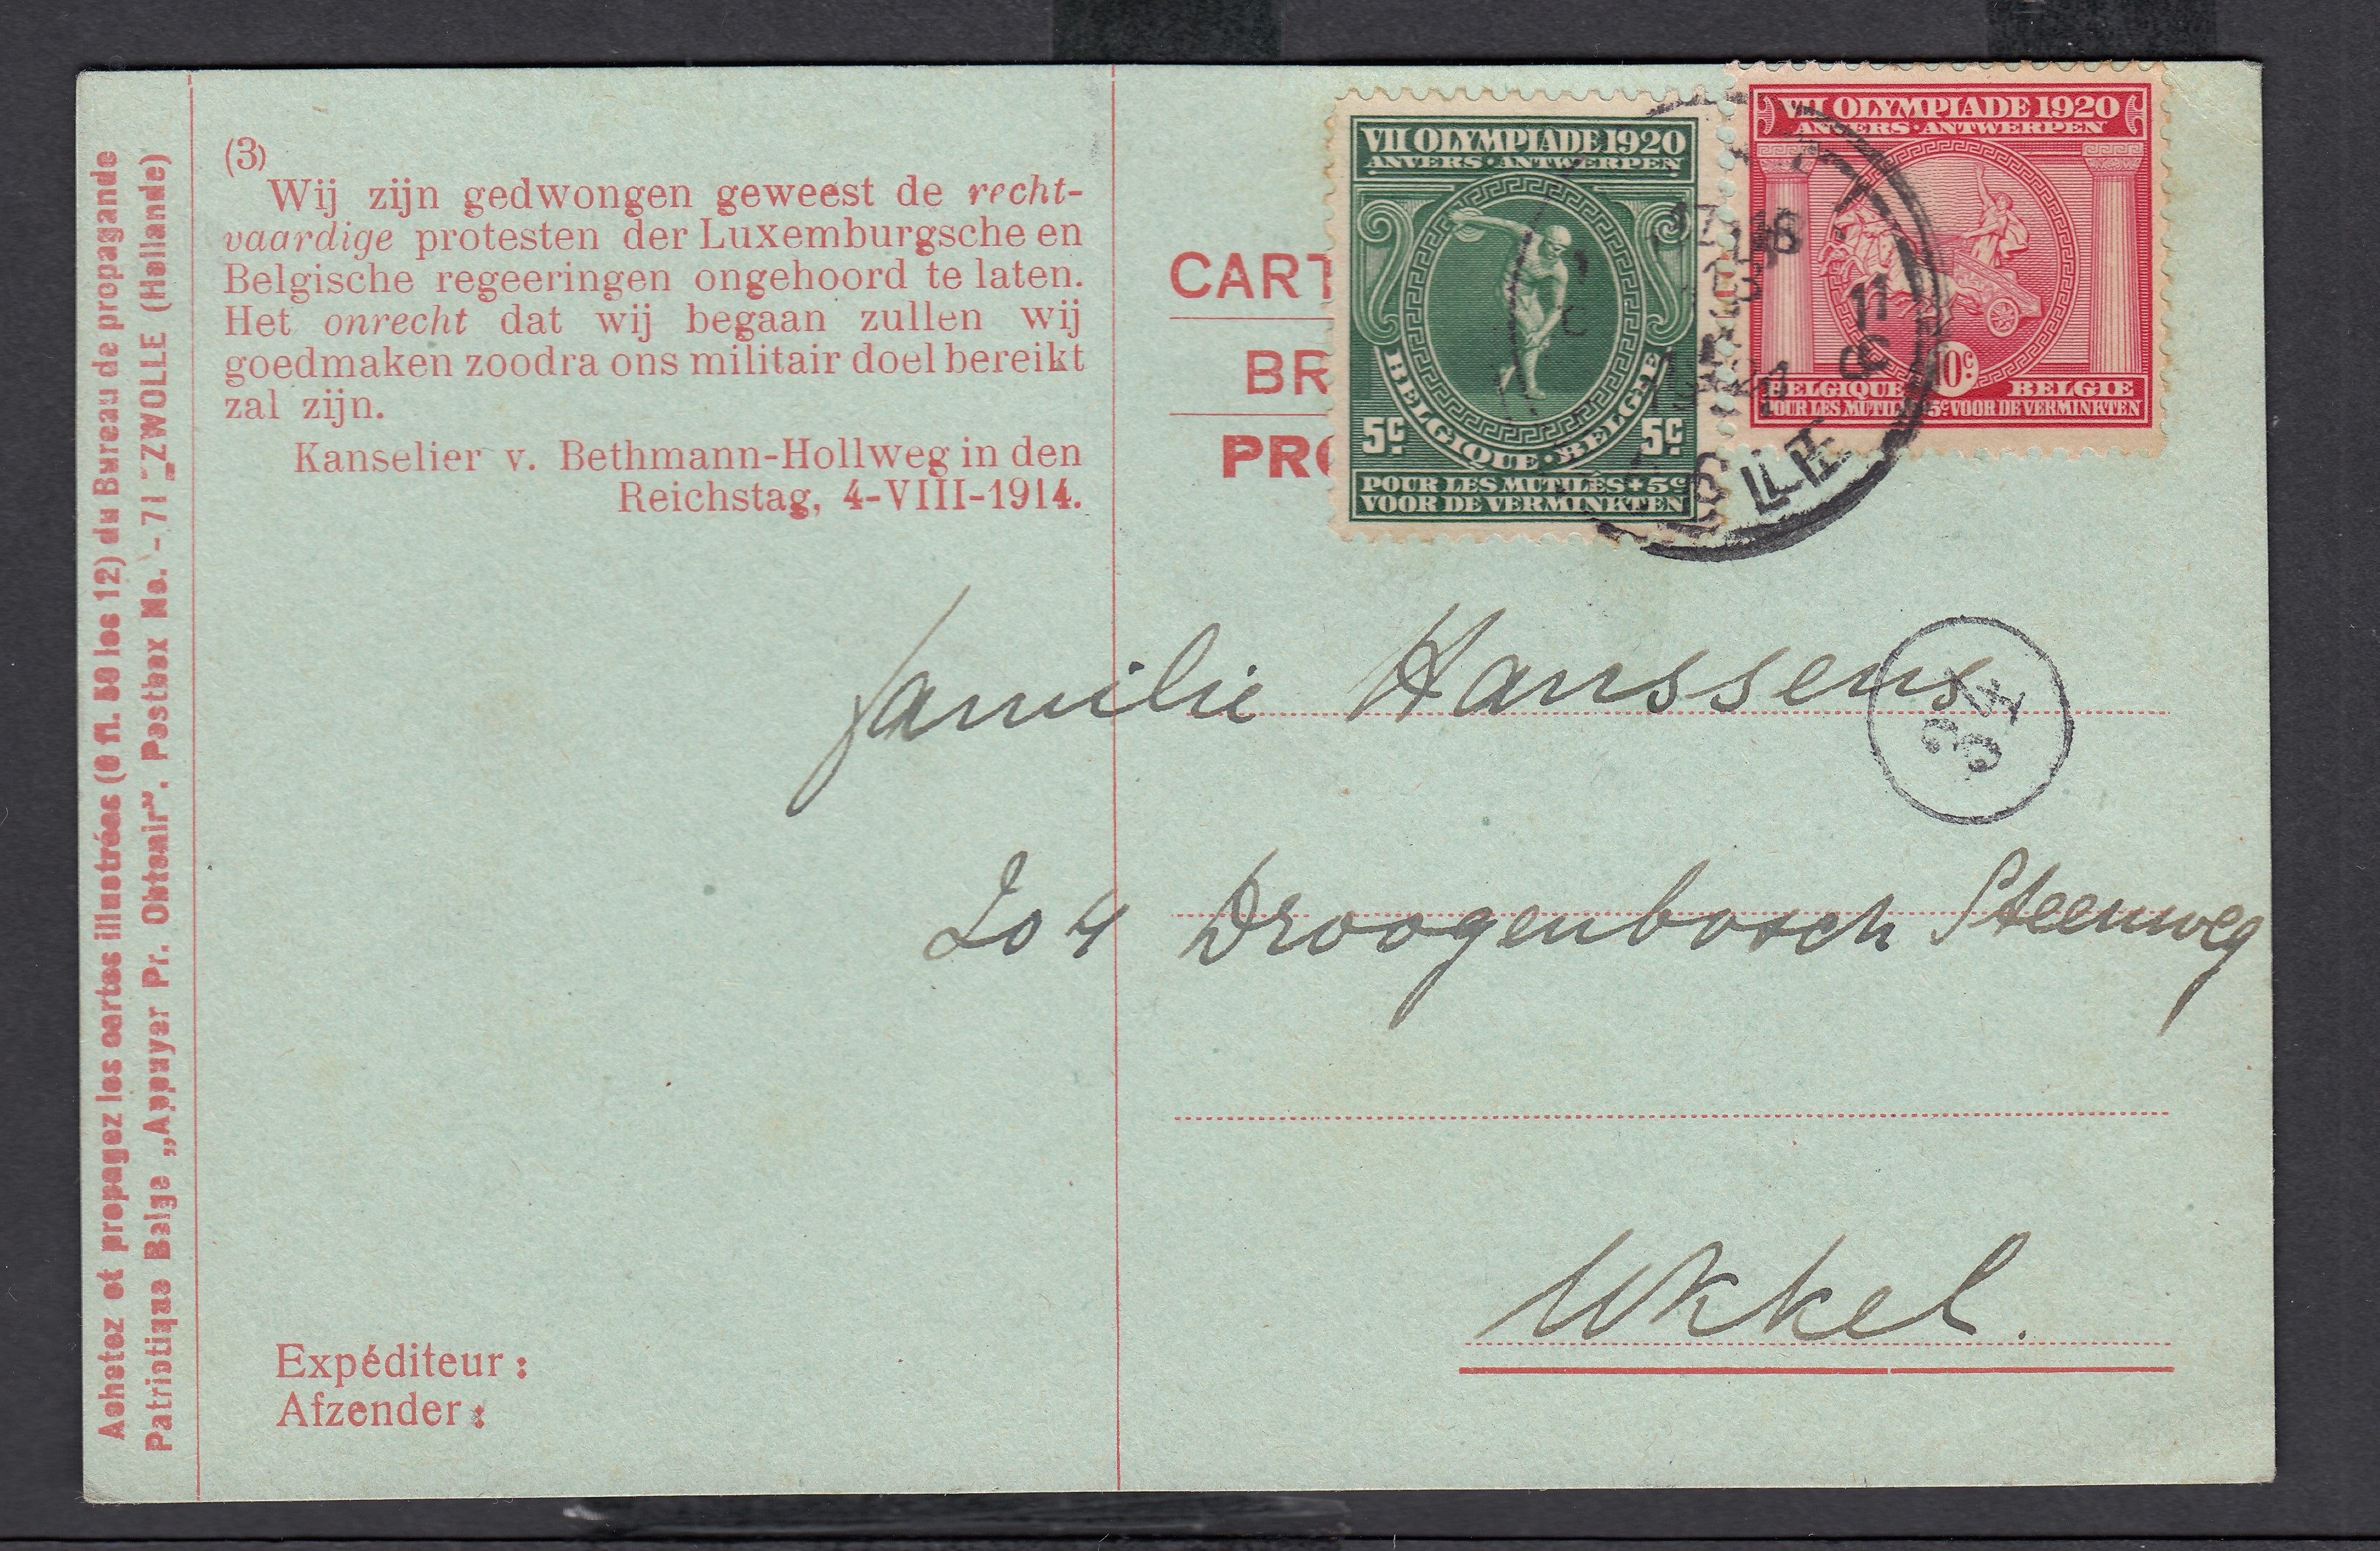 Achetez et propagez les cartes illustrées (0 fl. 50 les 12) du Bureau de propagande
Patriotique Belge „Appuyer Pr. Obtenir". Postbox No. - 71 - ZWOLLE (Hollande)
(3)
Wij zijn gedwongen geweest de recht-
vaardige protesten der Luxemburgsche en
Belgische regeeringen ongehoord te laten.
Het onrecht dat wij begaan zullen wij
goedmaken zoodra ons militair doel bereikt
zal zijn.
Kanselier v. Bethmann-Hollweg in den
Reichstag, 4-VIII-1914.
CART
BR
PR
VII OLYMPIADE 1920
ANVERS · ANTWERPEN
BELGIQUE · BELGIE
5C 5C
POUR LES MUTILÉS + 5c
VOOR DE VERMINKTEN
VII OLYMPIADE 1920
ANVERS · ANTWERPEN
10c
BELGIQUE BELGIE
POUR LES MUTIL 5c VOOR DE VERMINKTEN
11
familie Hanssens
34
204 Droogenbosch Steenweg
Ukkel.
Expéditeur :
Afzender :